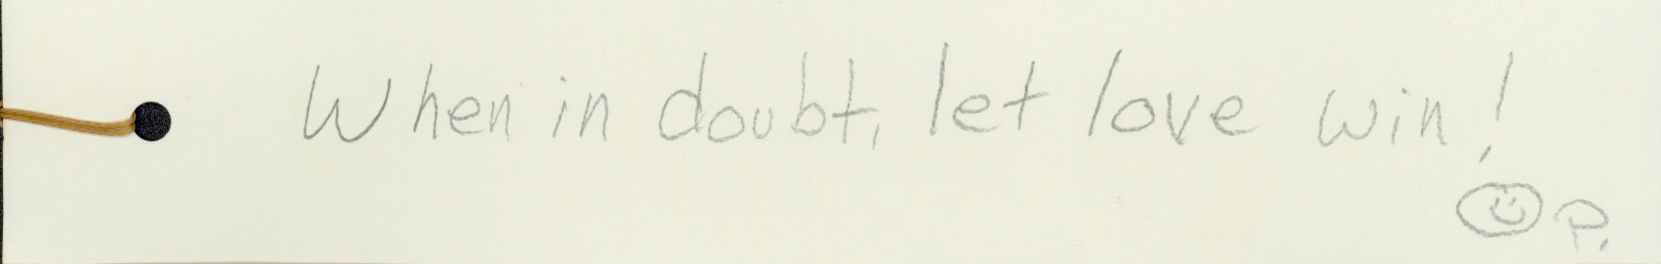 When in doubt, let love win!
☺ P.